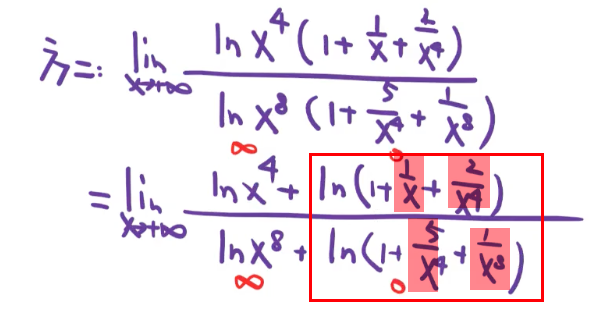 解二: lim x→+∞ ln x⁴(1+ 1/x + 2/x⁴) / ln x⁸(1+ 5/x⁴ + 1/x⁸)
∞ 0
= lim x→+∞ ln x⁴ + ln(1+ 1/x + 2/x⁴) / ln x⁸ + ln(1+ 5/x⁴ + 1/x⁸)
∞ 0